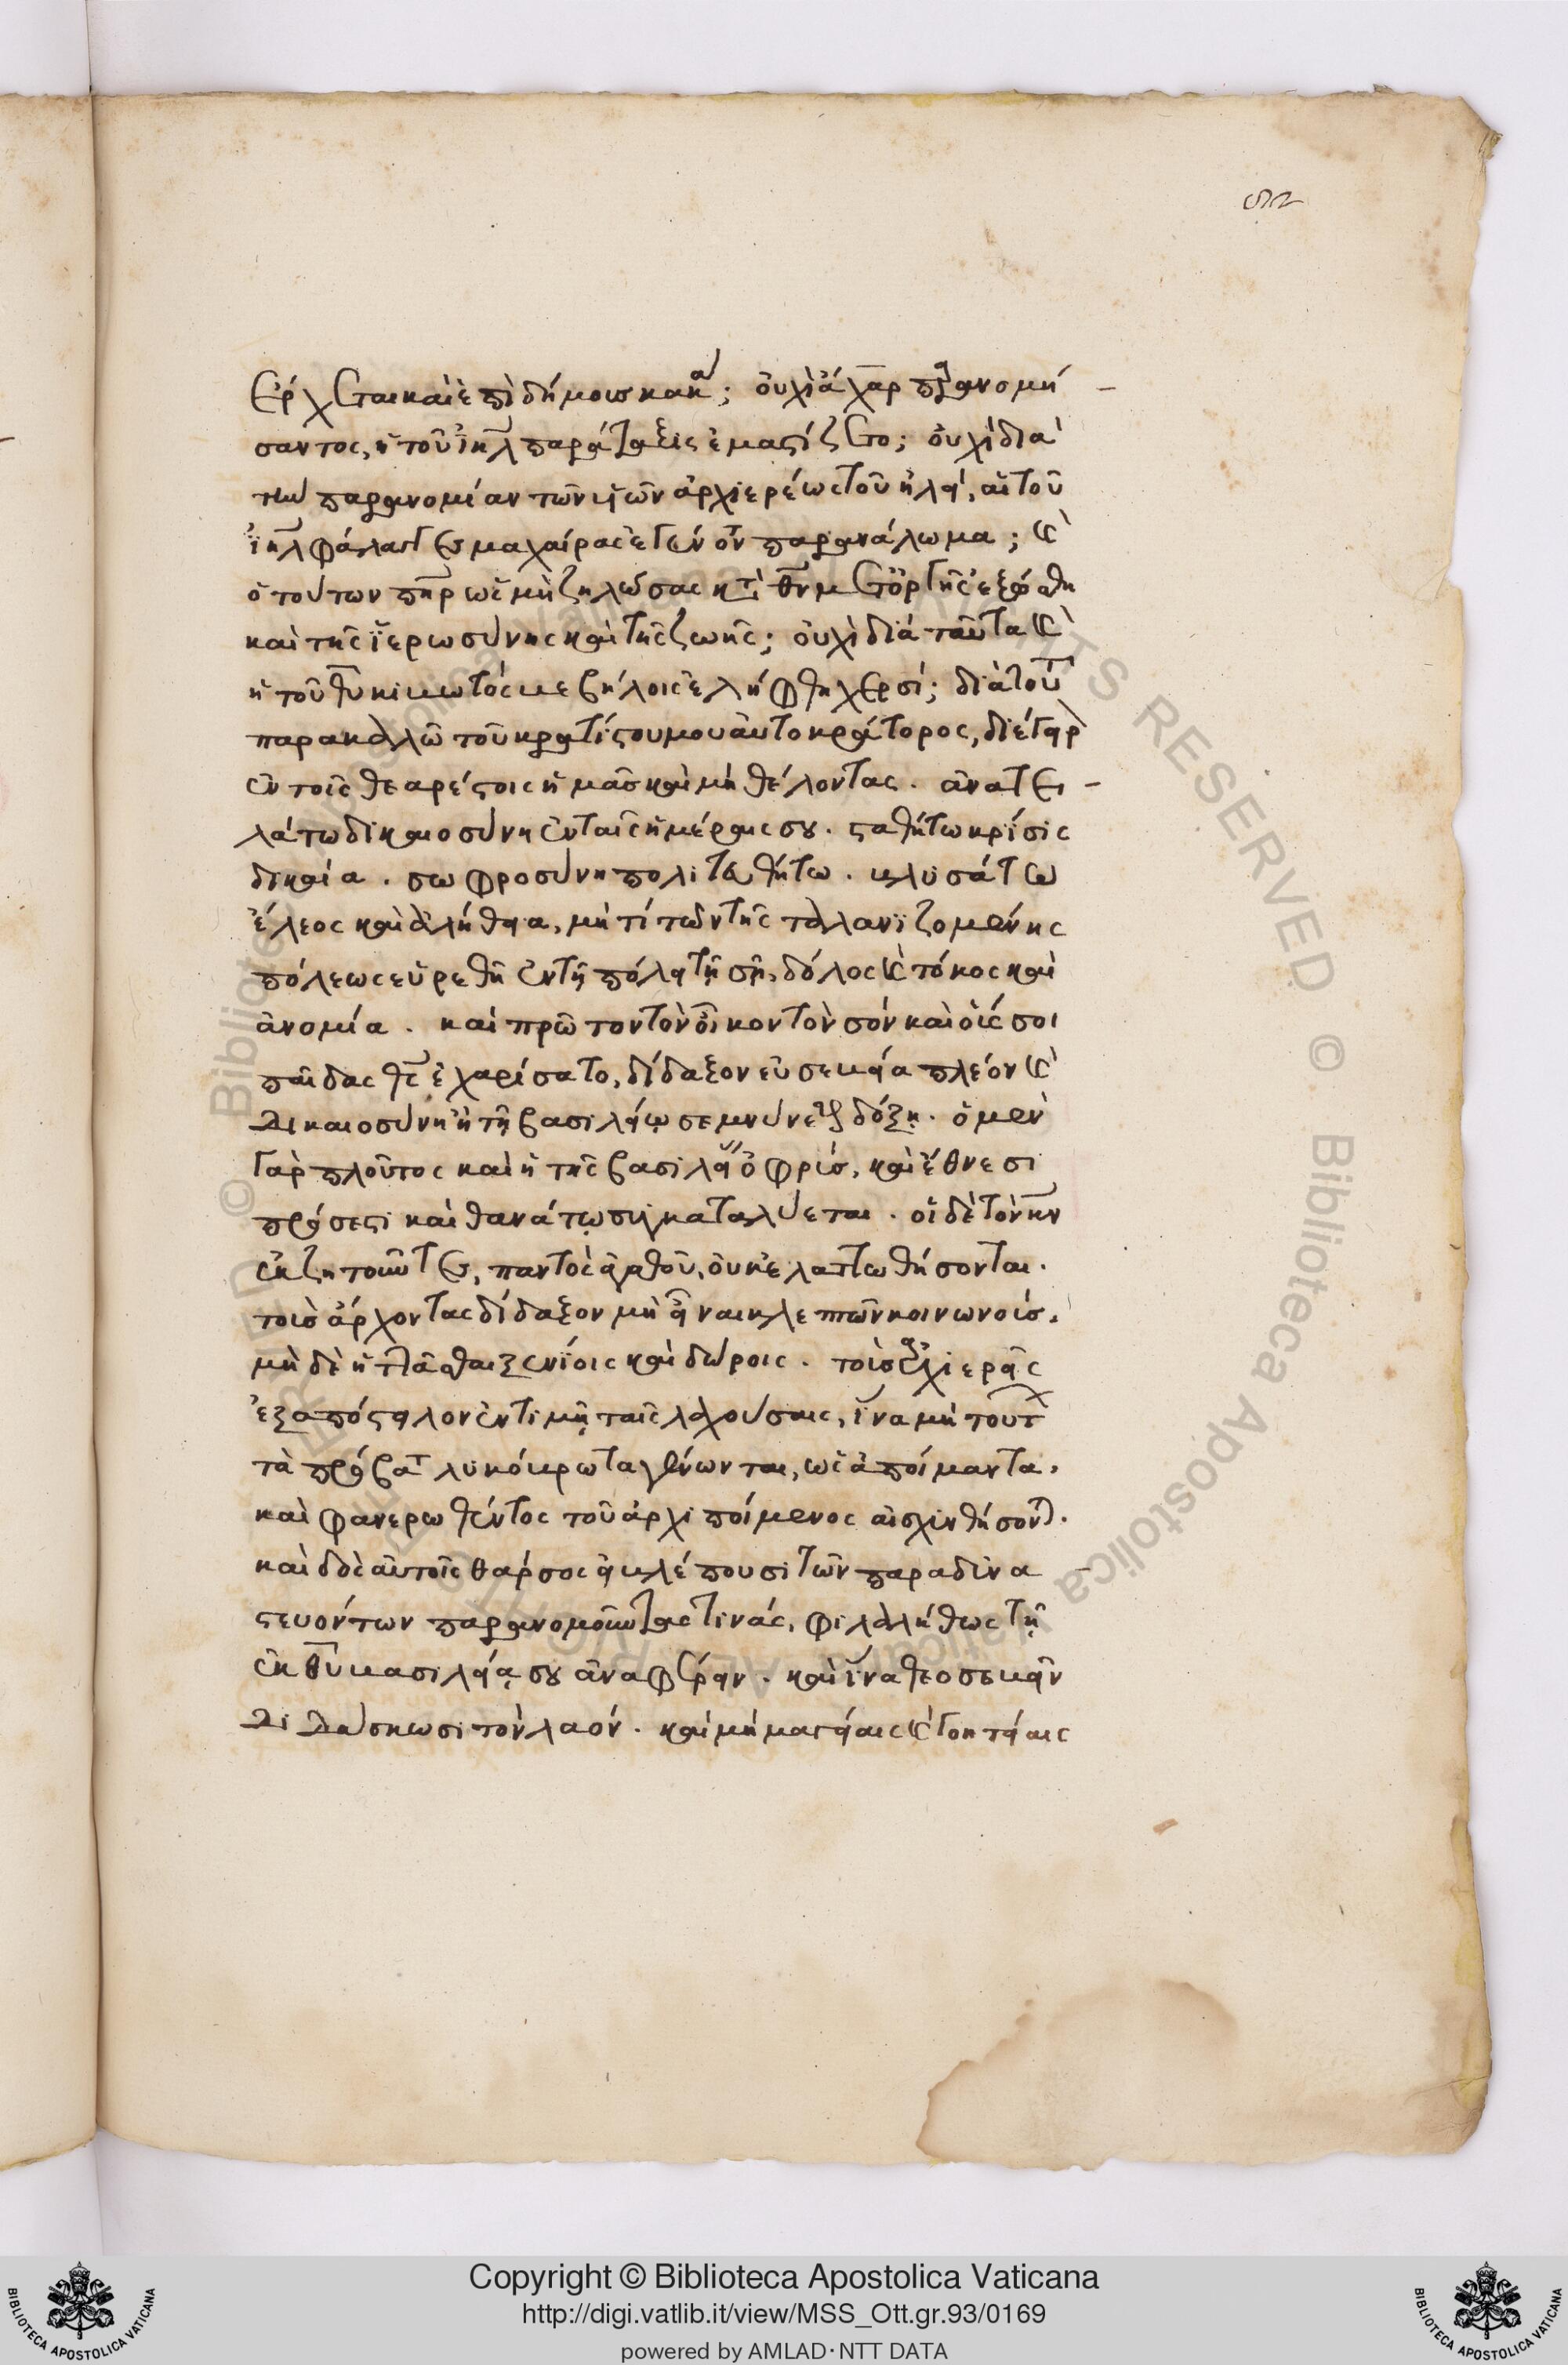 92
ἔρχεται καὶ ἐπὶ δήμοις κακά; οὐχὶ ἄχαρ παρανομή–
σαντος, ἡ τοῦ ἰηλ παράταξις ἐμαστίζετο; οὐχὶ διὰ
τὴν παρανομίαν τῶν υἱῶν ἀρχιερέως τοῦ ἠλεί, αἱ τοῦ
ἰηλ φάλαγγες μαχαίρας ἐγένοντο παρανάλωμα; καὶ
ὁ τούτων πηρ ὡς μὴ ζηλώσας κατὰ θν μετ' ὀργῆς ἐξεώθη
καὶ τῆς ἱερωσύνης καὶ τῆς ζωῆς; οὐχὶ διὰ ταῦτα καὶ
ἡ τοῦ θυ κιβωτὸς βεβήλοις ἐλήφθη χερσί; διὰ τοῦτο
παρακαλῶ τοῦ κρατίστου μου αὐτοκράτορος, διέγειρε
ἐν τοῖς θεαρέστοις ἡμᾶς καὶ μὴ θέλοντας. ἀνατει–
λάτω δικαιοσύνη ἐν ταῖς ἡμέραις σου. σταθήτω κρίσις
δικαία. σωφροσύνη πολιτευθήτω. βλυσάτω
ἔλεος καὶ ἀλήθεια, μή τί τῶν τῆς ταλανιζομένης
πόλεως εὑρεθῆ ἐν τῆ πόλει τῆ σῆ, δόλος καὶ τόκος καὶ
ἀνομία. καὶ πρῶτον τὸν οἶκον τὸν σὸν καὶ οἵς σοι
παῖδας θς ἐχαρίσατο, δίδαξον εὐσεβεία πλέον καὶ
δικαιοσύνη ἢ τῆ βασιλείω σεμνύνεσθαι δόξη. ὁ μὲν
γὰρ πλοῦτος καὶ ἡ τῆς βασιλείας ὀφρύς, καὶ ἔθνεσι
πρόσεστι καὶ θανάτω συγκαταλύεται. οἱ δὲ τὸν κν
ἐκζητοῦντες, παντὸς ἀγαθοῦ, οὐκ ἐλαττωθήσονται.
τοὺς ἄρχοντας δίδαξον μὴ εἶναι κλεπτῶν κοινωνούς,
μὴ δὲ ἡττᾶσθαι ξενίοις καὶ δώροις. τοὺς ἀρχιερεῖς
ἐξαπόστειλον ἐν τιμῆ ταῖς λαχούσαις, ἵνα μὴ τούτων
τὰ πρόβατα λυκόβρωτα γένωνται, ὡς ἀποίμαντα,
καὶ φανερωθέντος τοῦ ἀρχιποίμενος αἰσχυνθήσονται.
καὶ δὸς αὐτοῖς θάρσος εἰ βλέπουσι τῶν παραδυνα–
στευόντων παρανομοῦντας τινάς, φιλαλήθως τῆ
ἐκ θυ βασιλεία σου ἀναφέρειν. καὶ ἵνα θεοσεβεῖν
διδάσκωσι τὸν λαόν. καὶ μὴ μαγείαις καὶ γοητείαις
Copyright © Biblioteca Apostolica Vaticana
http://digi.vatlib.it/view/MSS_Ott.gr.93/0169
powered by AMLAD·NTT DATA